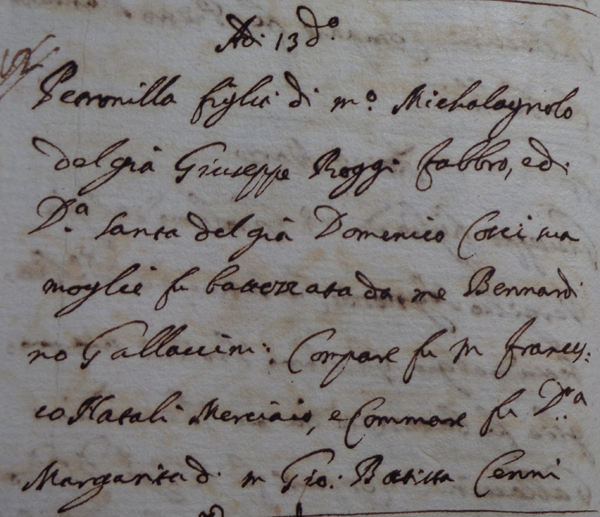 Adi 13 d.º
Petronilla figlia di m.º Michalagnolo
del già Giuseppe Roggi fabbro, e di
D.ª Santa del già Domenico Cosci sua
moglie fu battezzata da me Bernardi
no Gallaccini: Compare fu m francis:
co Natali Merciaio, e Commare fu D.ª
Margarita d. m Gio: Batista Cenni